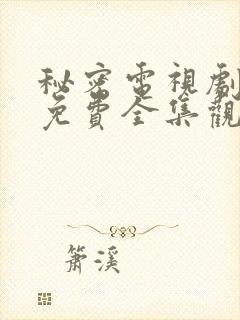 秘密電視劇
免費全集觀
簫溪